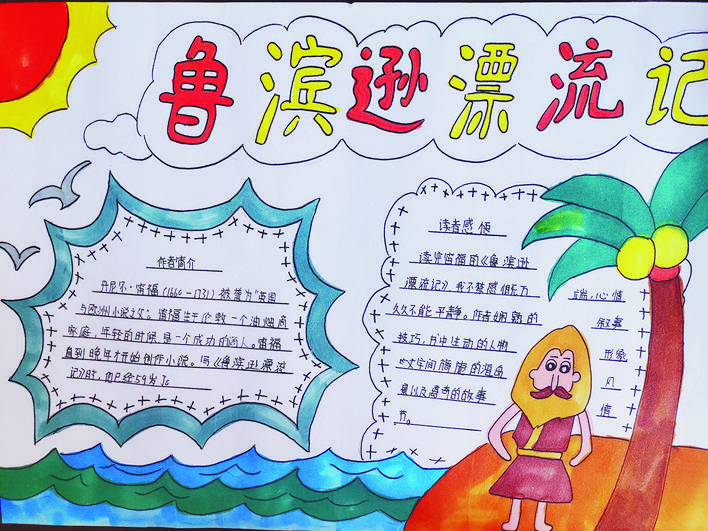 鲁滨逊漂流记
作者简介
丹尼尔·笛福(1660-1731)被誉为"英国
与欧洲小说之父"。笛福生于伦敦一个油烛商
家庭,年轻的时候是一个成功的商人。笛福
直到晚年才开始创作小说。写《鲁滨逊漂流
记》时,他已经59岁了。
读者感
读完笛福的《鲁滨逊
漂流记》我不禁感慨万 端,心情
久久不能平静。作者娴熟的 叙事
技巧,书中生动的人物 形象
文字间旖旎的 风
以及离奇的故事 情
节。